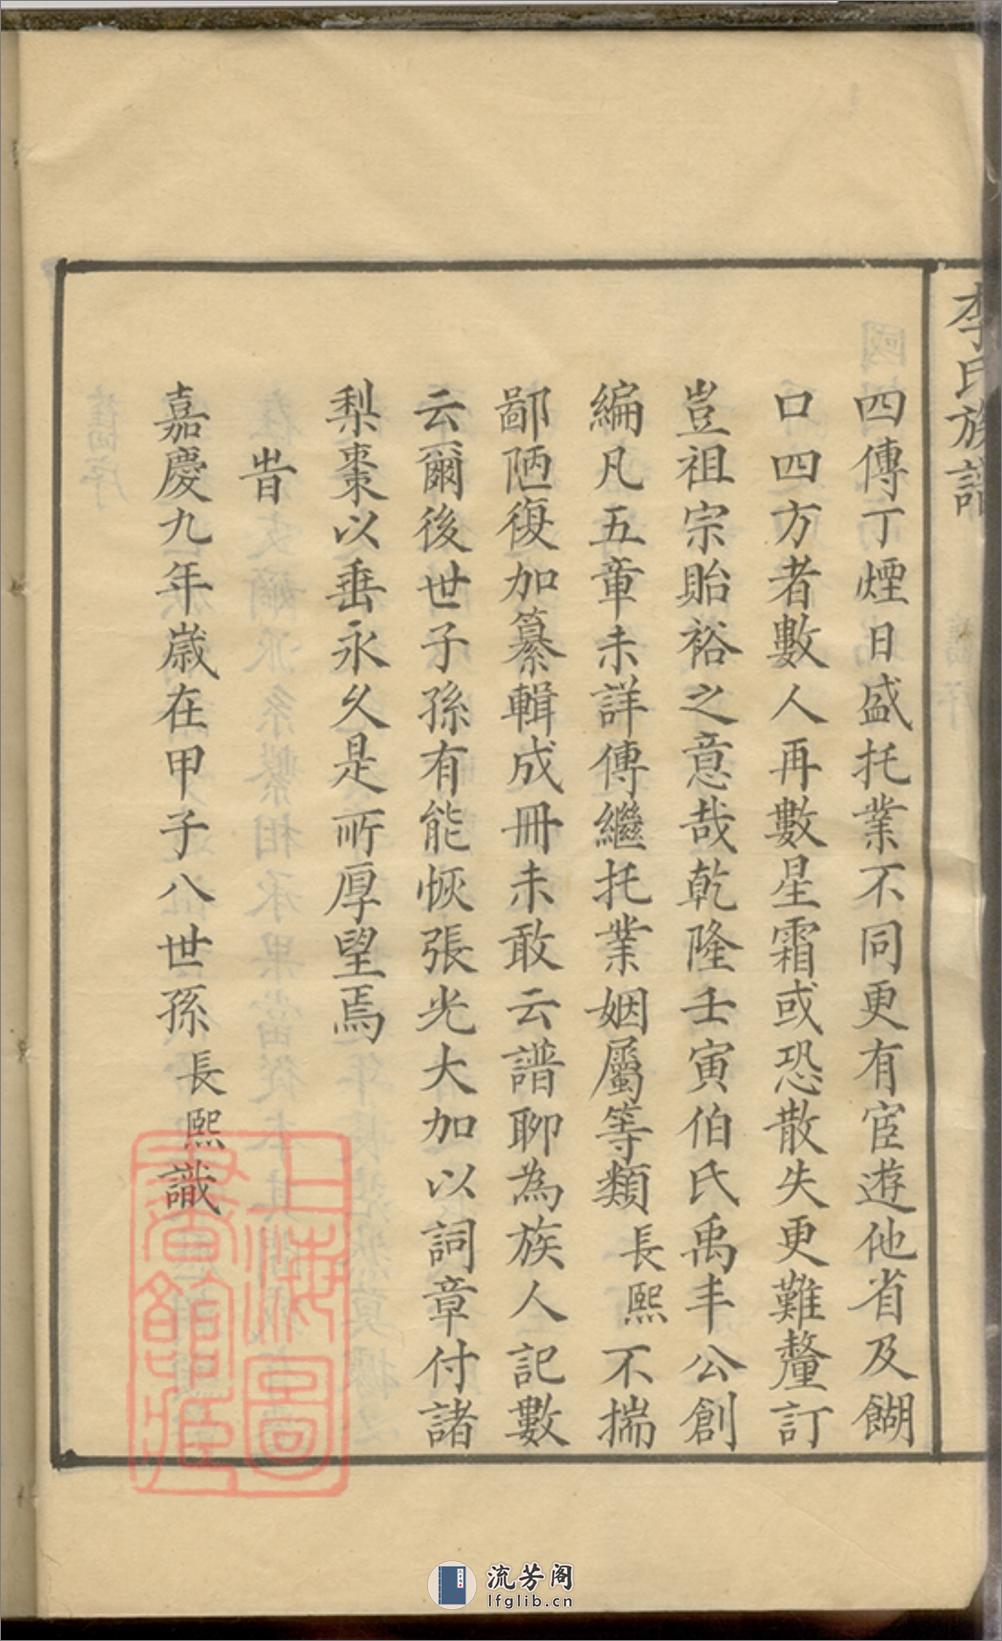 李氏族譜
四傳丁煙日盛托業不同更有宦遊他省及餬
口四方者數人再數星霜或恐散失更難釐訂
豈祖宗貽裕之意哉乾隆壬寅伯氏禹丰公創
編凡五章未詳傳繼托業姻屬等類長熙不揣
鄙陋復加纂輯成冊未敢云譜聊為族人記數
云爾後世子孫有能恢張光大加以詞章付諸
梨棗以垂永久是所厚望焉
旹
嘉慶九年歲在甲子八世孫長熙識
上海圖
書館藏
流芳阁
lfglib.cn